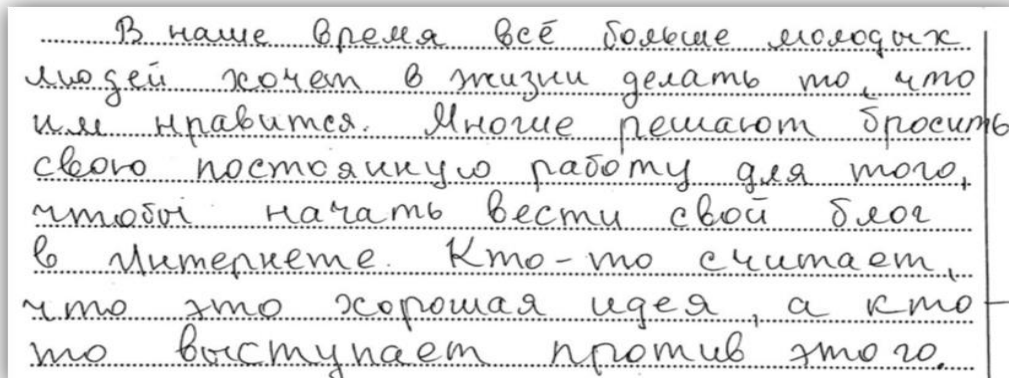 В наше время всё больше молодых
людей хочет в жизни делать то, что
им нравится. Многие решают бросить
свою постоянную работу для того,
чтобы начать вести свой блог
в Интернете. Кто-то считает,
что это хорошая идея, а кто
то выступает против этого.